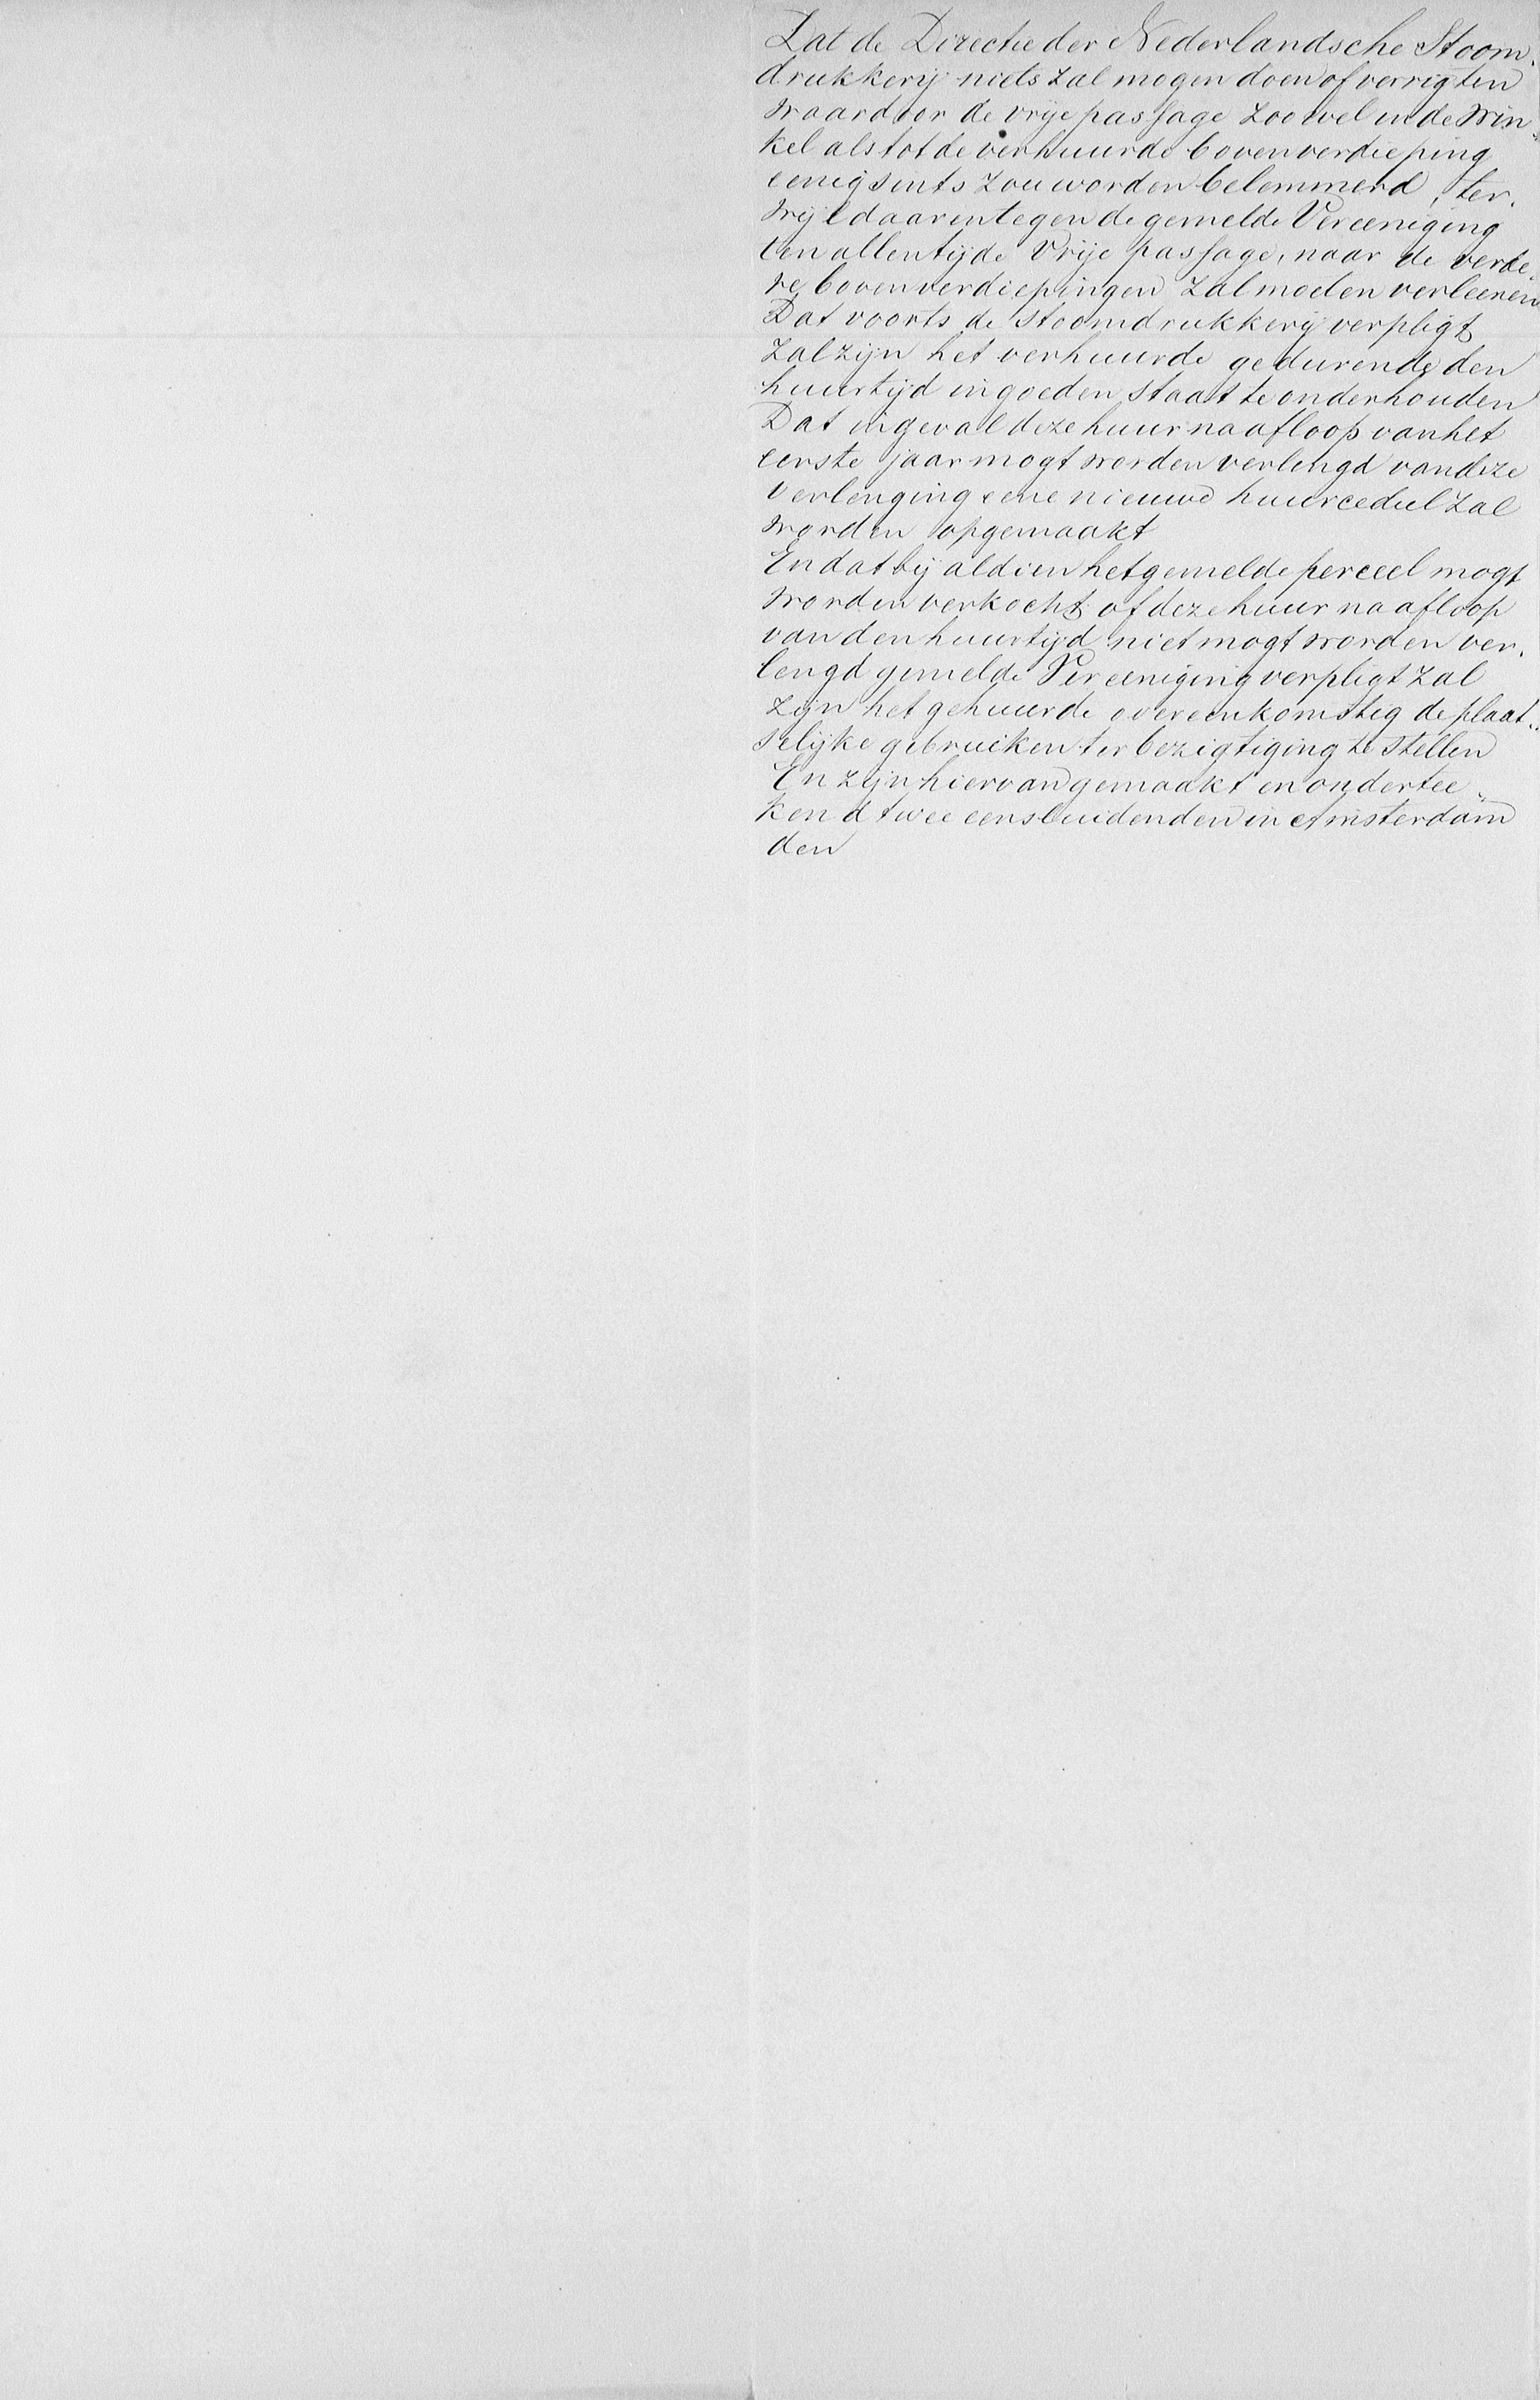 Dat de Directie der Nederlandsche Stoom„
drukkerij niets zal mogen doen of verrigten
waardoor de vrije passage zoowel in de Win„
kel als tot de verhuurde bovenverdieping
eenigsints zou worden belemmerd, ter„
wijl daarentegen de gemelde Vereeniging
ten allen tijde Vrije passage, naar de verde„
re bovenverdiepingen zal moeten verleenen
Dat voorts de stoomdrukkerij verpligt
zal zijn het verhuurde gedurende den
huurtijd in goeden staat te onderhouden
Dat ingeval deze huur na afloop van het
eerste jaar mogt worden verlengd van deze
verlenging eene nieuwe huurcedul zal
worden opgemaakt
En dat bij aldien het gemelde perceel mogt
worden verkocht of deze huur na afloop
van den huurtijd niet mogt worden ver„
lengd gemelde Vereeniging verpligt zal
zijn het gehuurde overeenkomstig de plaat„
selijke gebruiken ter bezigtiging te stellen
En zijn hiervan gemaakt en ondertee„
kend twee eensluidenden in Amsterdam
den